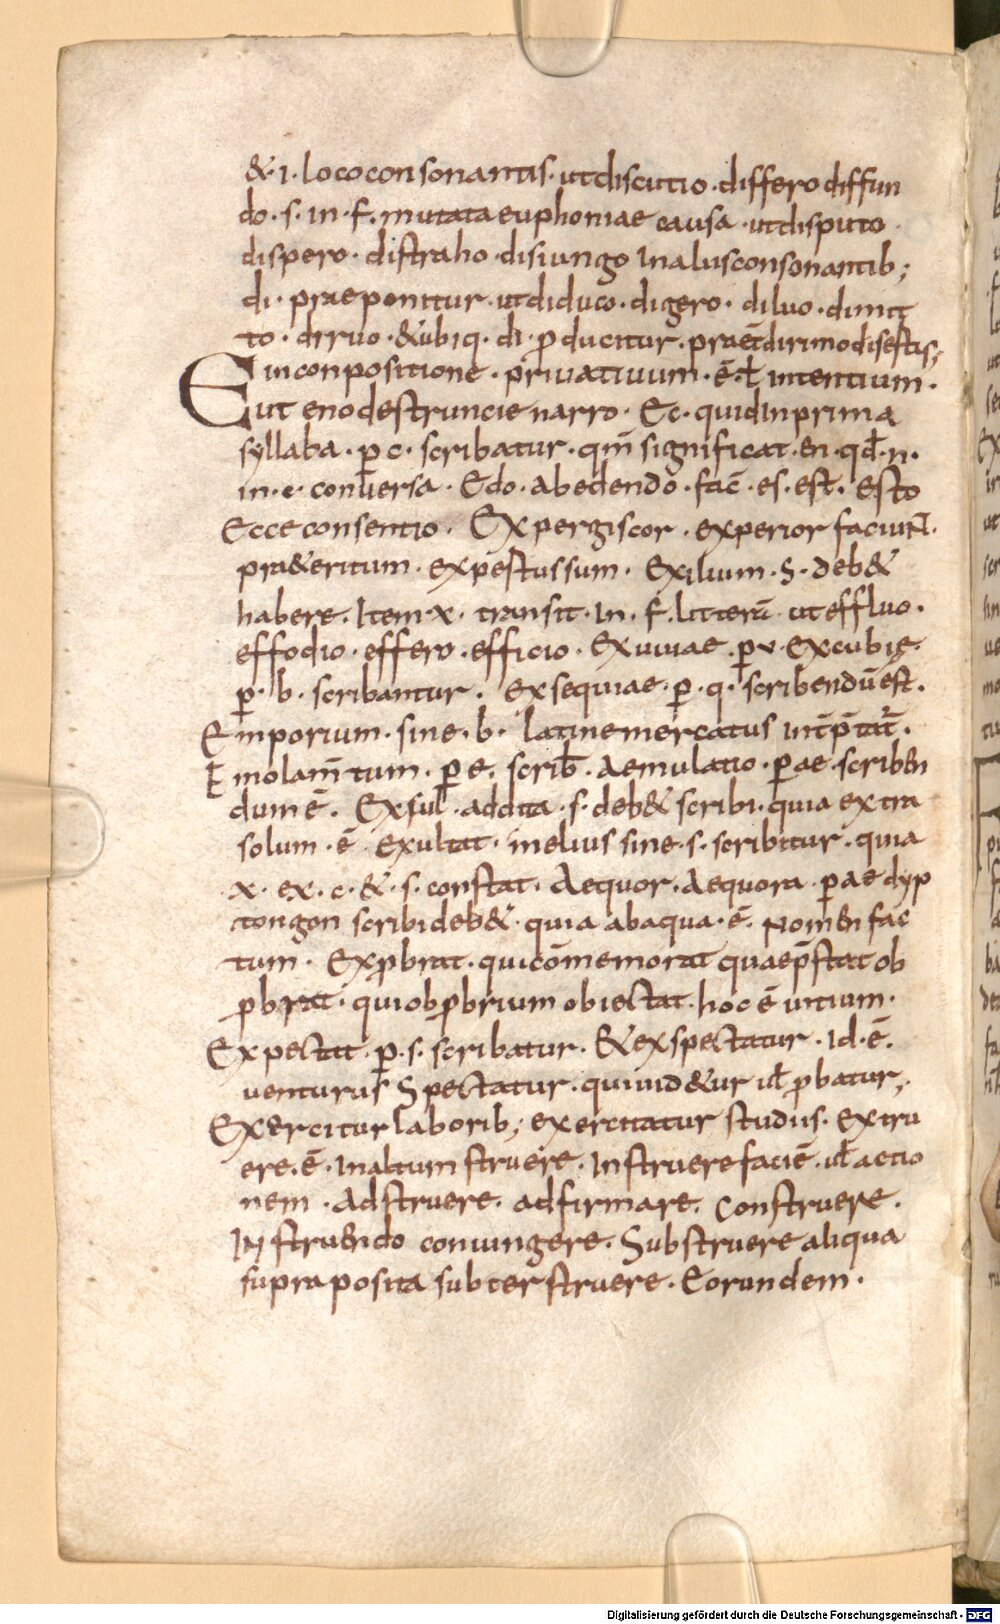 &·i· loco consonantis· ut discutio· differo diffun
do· s· in· f· mutata euphoniae causa· ut disputo·
dispero· distraho· disiungo In aliis consonantib;
di· praeponitur· ut diduco· digero· diluo· dimit
to· diruo· &ubiq· di· ꝓducitur· praet̄ dirimo disertis;
E in conpositione· priuatiuum· ē· ƚ intentiuum·
ut enodes truncie narro· Ec· quid In prima
syllaba· ꝑ c· scribatur· qm̄ significat· en· qd̄· n·
in· c· conuersa· Edo· ab edendo· fac̄· es· est· esto
Ecce consentio· Expergiscor· experior faciunt·
pra&eritum· expertus sum· Exilium· S· deb&
habere· Item· x· transit· In· f· litterā ut effluo·
effodio· effero· efficio· Exuuiae· ꝑ v· Excubię·
ꝑ· b· scribantur· exsequiae· ꝑ· q· scribendū est·
Emporium· sine· b· latine mercatus int̄p̄tat̄·
Emolam̄tum· ꝑ e· scrib̄· Aemulatio· ꝑ ae· scriben
dum ē· Exsul· addita· s· deb& scribi· quia extra
solum· ē Exultat· melius sine· s· scribitur· quia
x· ex· c· &· s· constat· Aequor· Aequora· ꝑ ae dyp
tongon scribi deb&· quia ab aqua· ē· Nomen fac
tum· Exꝓbrat· qui cōmemorat quae p̄stat ob
ꝓbrat· qui obꝓbrium obiectat· hoc ē uitium·
Expectat· ꝑ· s· scribatur· &exspectatur· Id· ē·
uenturus Spectatur· qui uid&ur uƚ ꝓbatur;
Exercitur laborib; exercitatur studiis· extru
ere· ē· In altum struere· Instruere faciē· uƚ actio
nem· Adstruere· adfirmare· Construere·
In struendo coniungere· Substruere aliqua
supra posita subter struere· Eorundem·
Digitalisierung gefördert durch die Deutsche Forschungsgemeinschaft - DFG